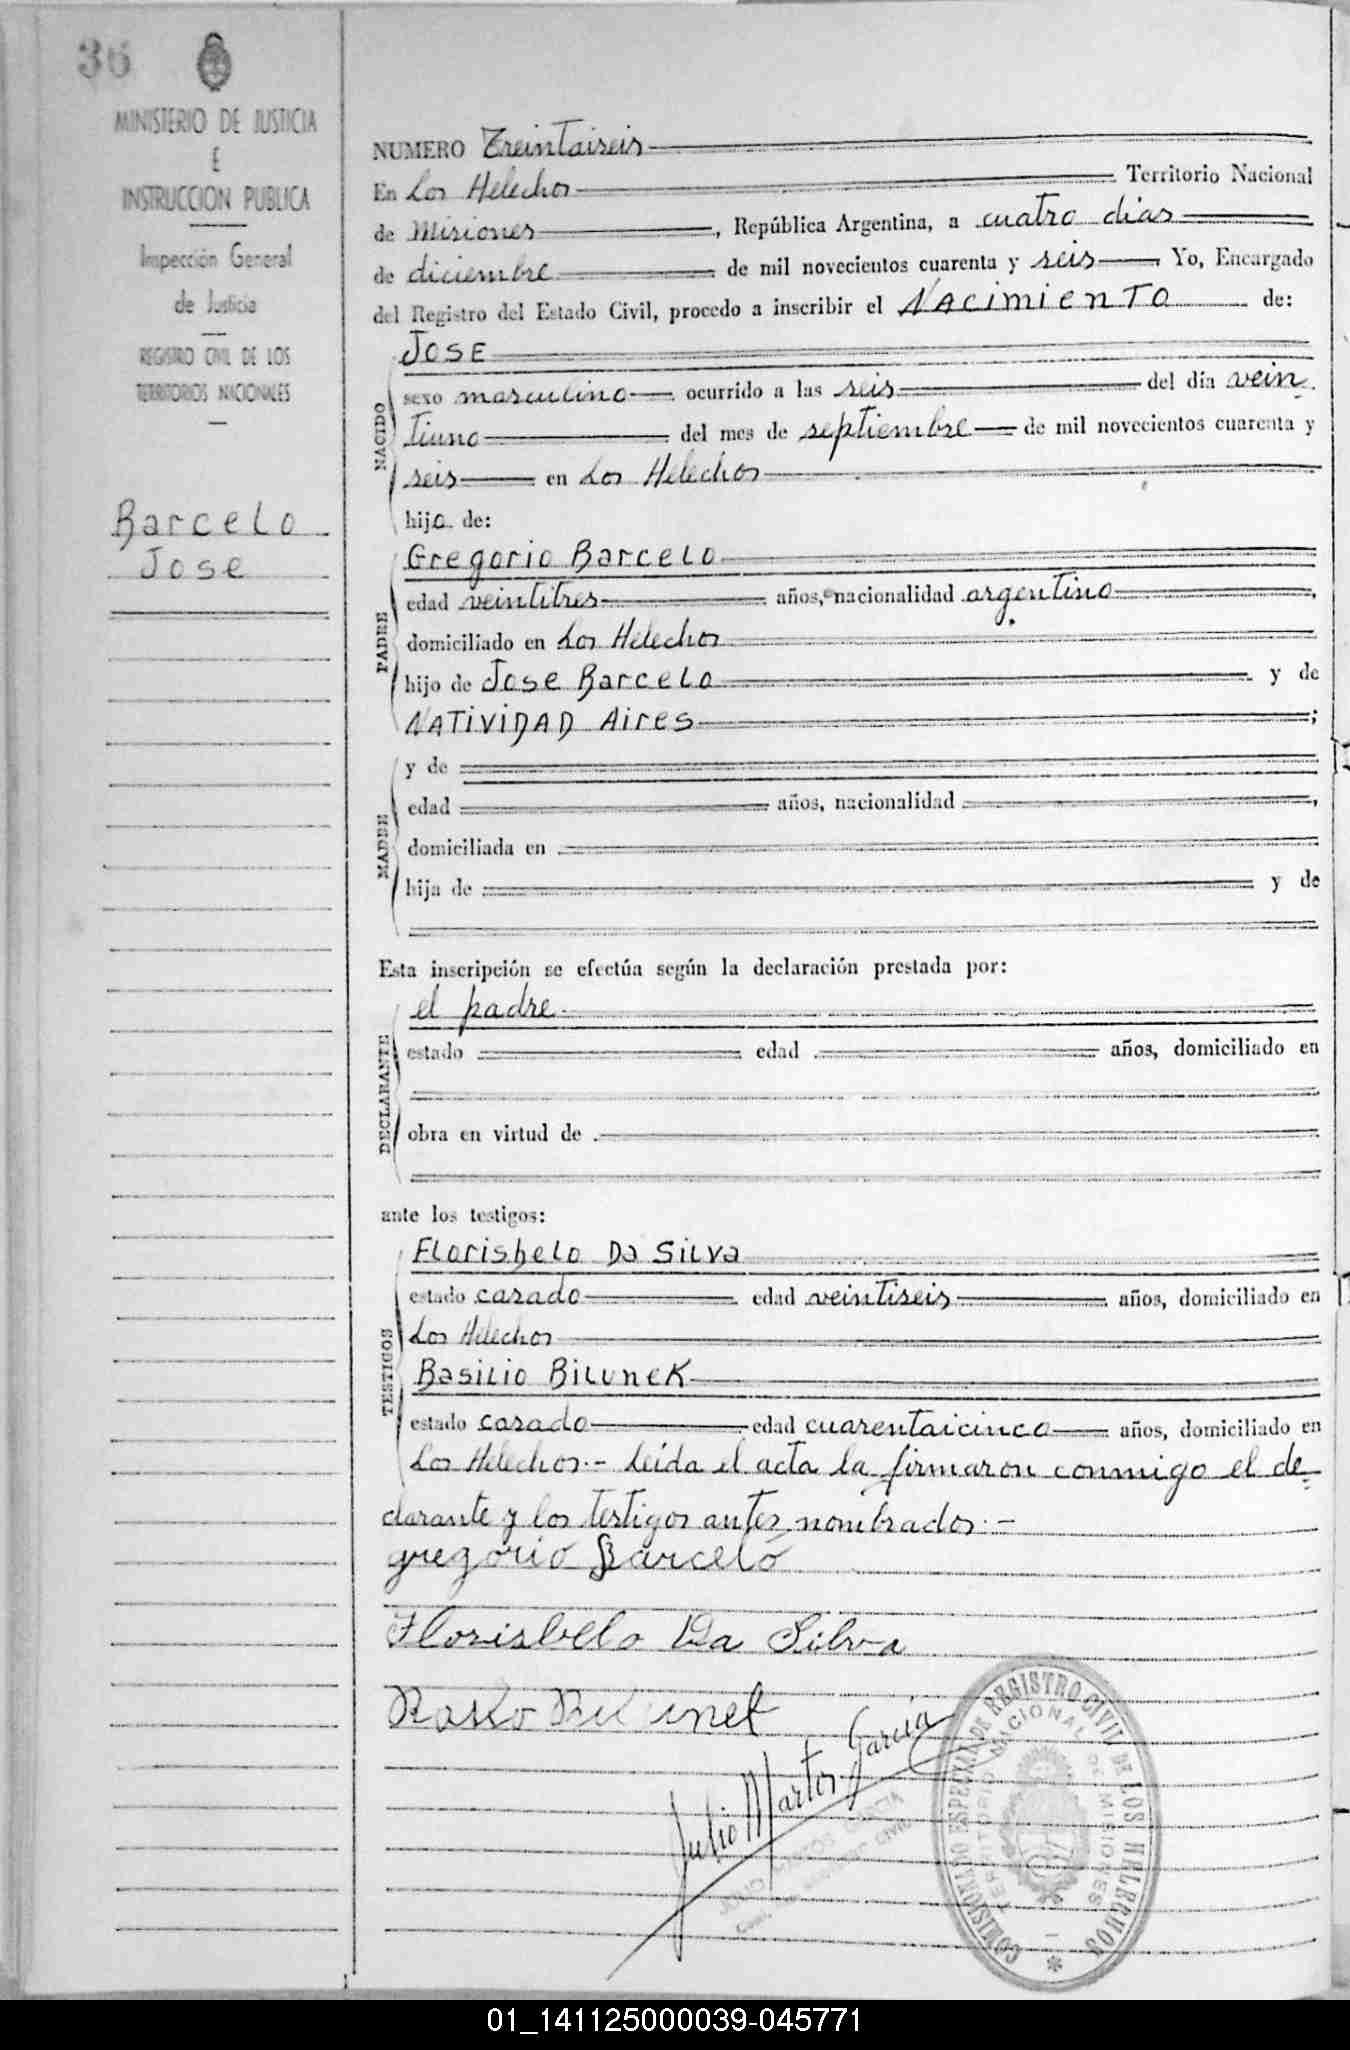 36
MINISTERIO DE JUSTICIA
E
INSTRUCCION PUBLICA
Inspección General
de Justicia
REGISTRO CIVIL DE LOS
TERRITORIOS NACIONALES
Barcelo
Jose
NUMERO Treintaiseis
En Los Helechos Territorio Nacional
de Misiones, República Argentina, a cuatro dias
de diciembre de mil novecientos cuarenta y seis Yo, Encargado
del Registro del Estado Civil, procedo a inscribir el NACIMIENTO de:
NACIDO
JOSE
sexo masculino ocurrido a las seis del día vein
tiuno del mes de septiembre de mil novecientos cuarenta y
seis en Los Helechos
hijo de:
PADRE
Gregorio Barcelo
edad veintitres años, nacionalidad argentino,
domiciliado en Los Helechos
hijo de Jose Barcelo y de
NATIVIDAD Aires;
MADRE
y de
edad años, nacionalidad,
domiciliada en
hija de y de
Esta inscripción se efectúa según la declaración prestada por:
DECLARANTE
el padre
estado edad años, domiciliado en
obra en virtud de
ante los testigos:
TESTIGOS
Florisbelo Da Silva
estado casado edad veintiseis años, domiciliado en
Los Helechos
Basilio Bilunek
estado casado edad cuarentaicinco años, domiciliado en
Los Helechos.- Leida el acta la firmaron conmigo el de=
clarante y los testigos antes nombrados.-
gregorio Barceló
Florisbelo Da Silva
Julio Martos Garcia
JULIO MARTOS GARCIA
COMISIONADO ESPECIAL DE REGISTRO CIVIL DE LOS HELECHOS
TERRITORIO NACIONAL DE MISIONES
01_141125000039-045771